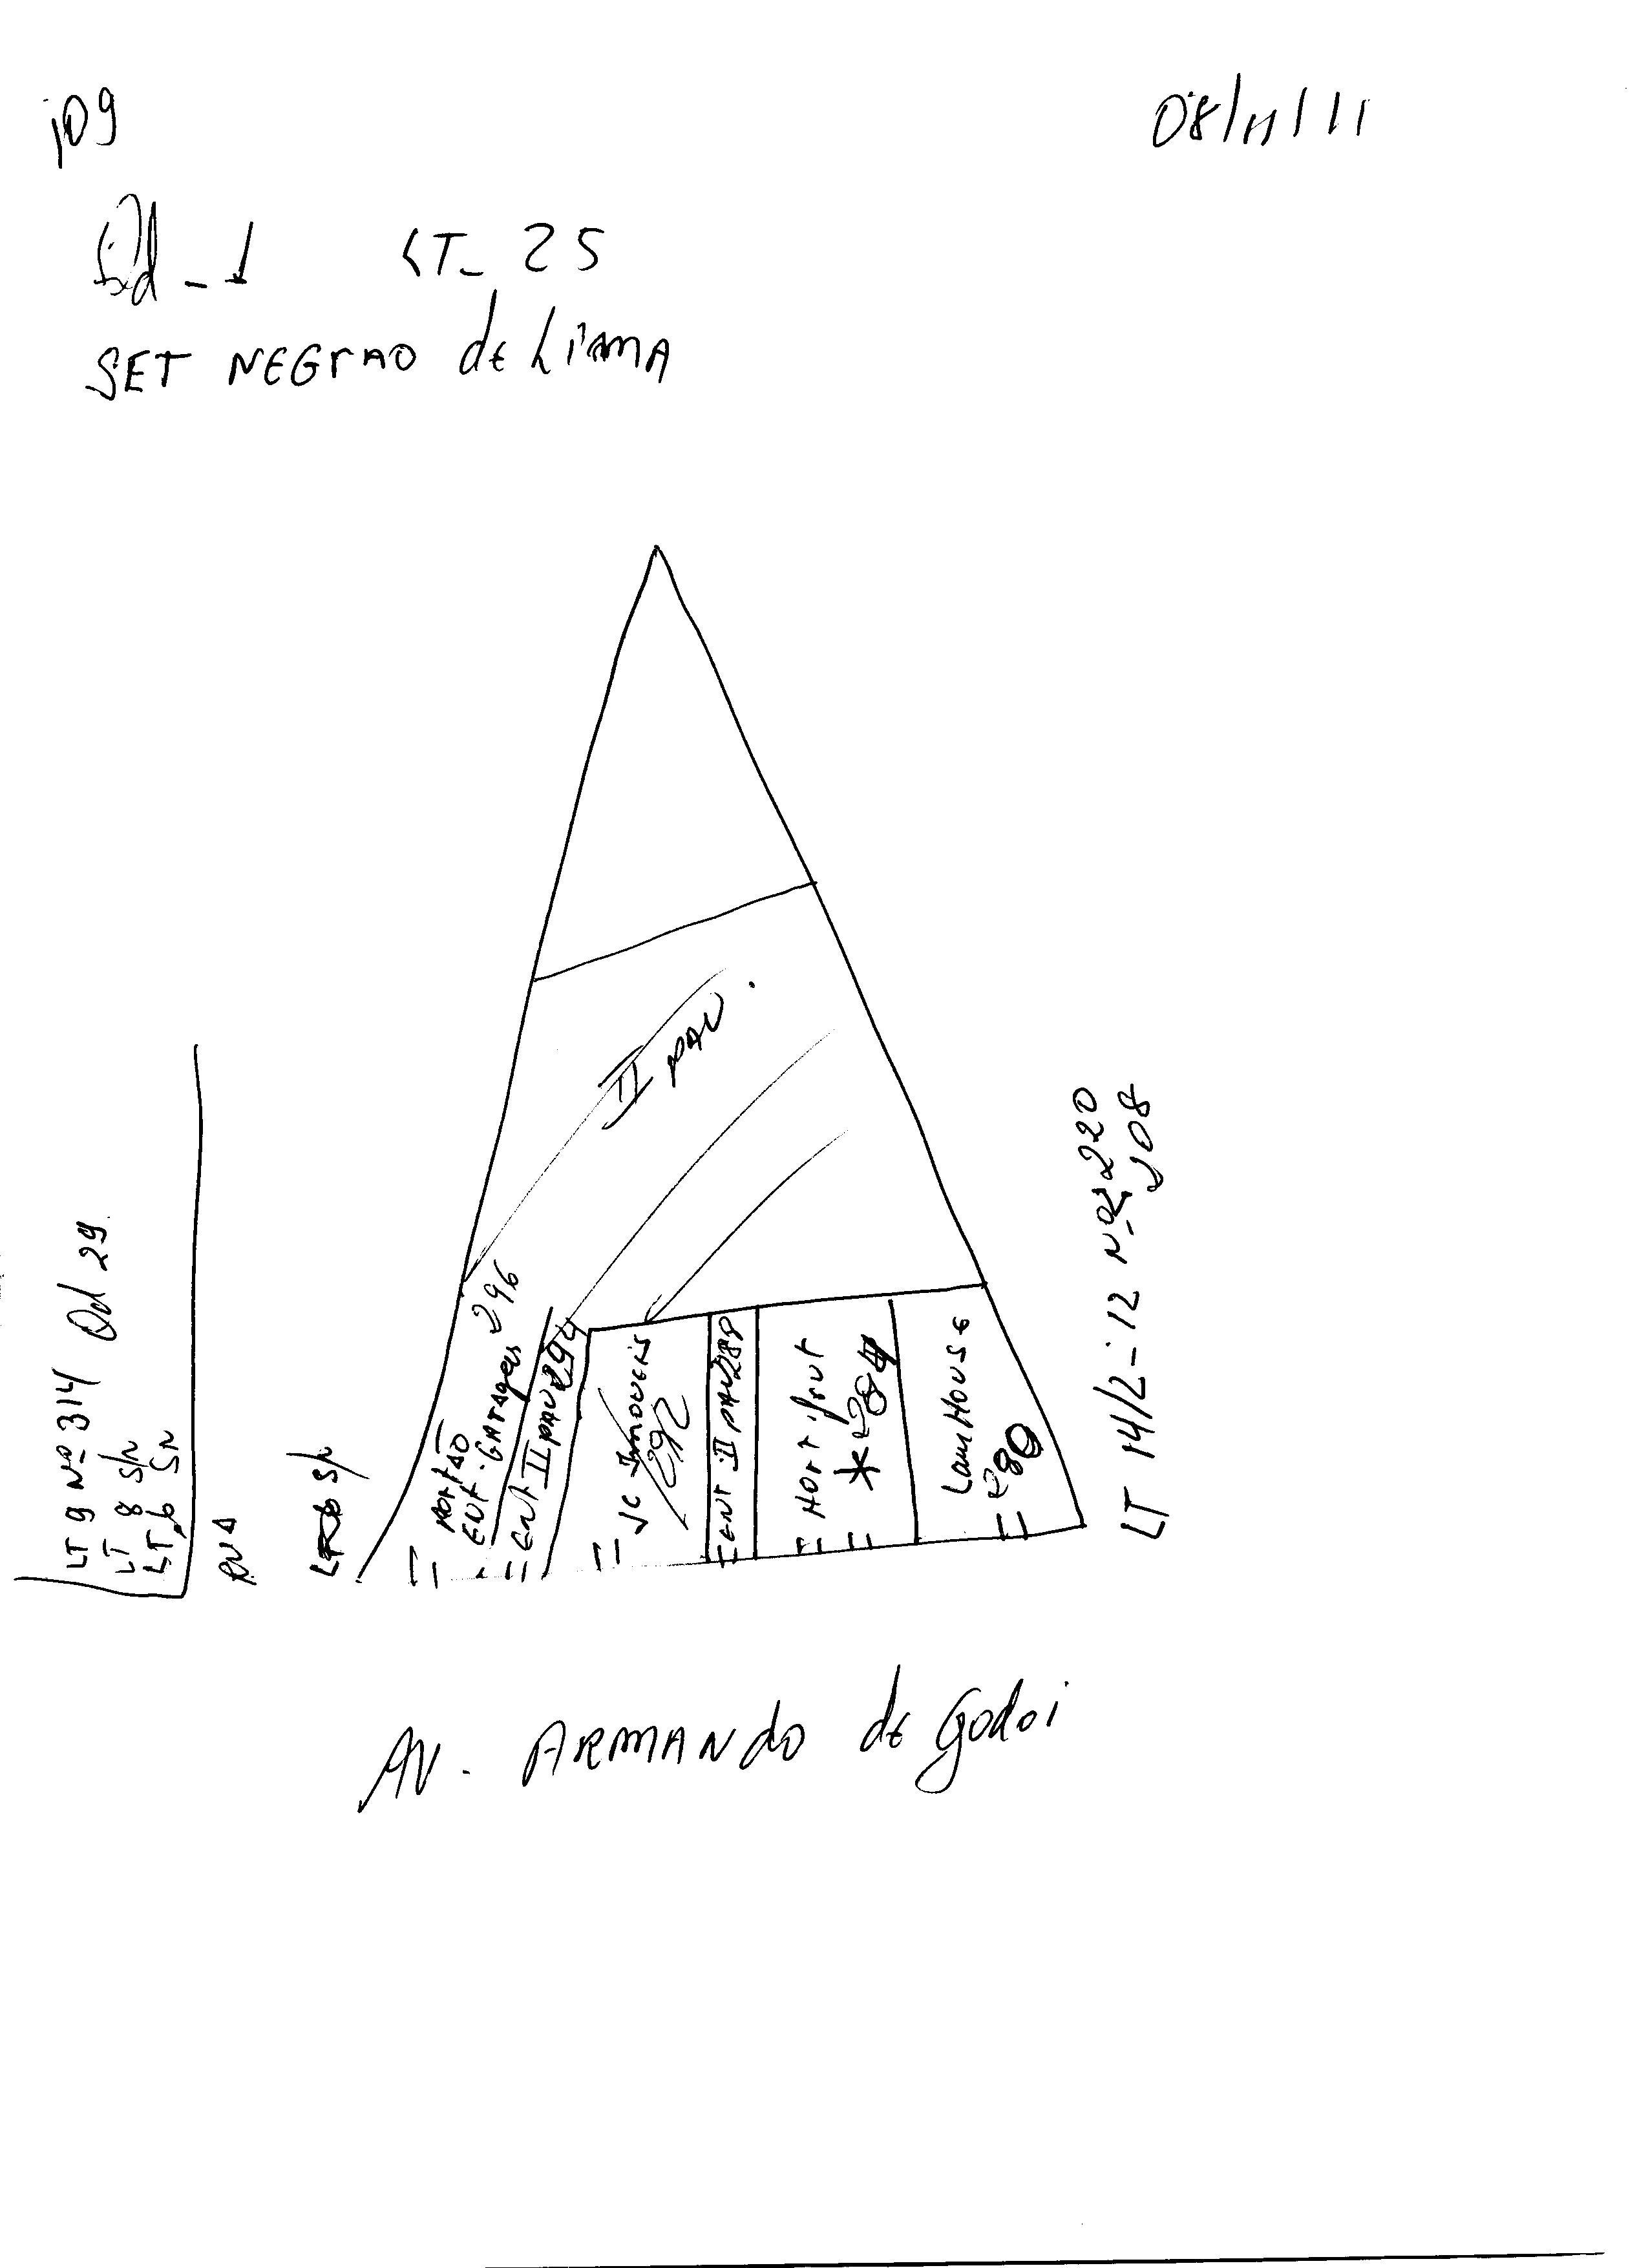 j09
08/11/11
Qd - 1 LT- 25
SET NEGrAO de LiMA
II PAV.
LT 9 Nº 314 Qd 29
LT 8 S/N
LT 6 SN
RUA
S/N
PORTÃO
ENT. GArAgeM 296
ENT II PAV 294
JC IMOVEIS
292
ENT II PAV 288
HOrTifruT
* 284
LamHouse
280
LT 14/2-12 Nº 220
J08
AV. ARMANdo de Godoi